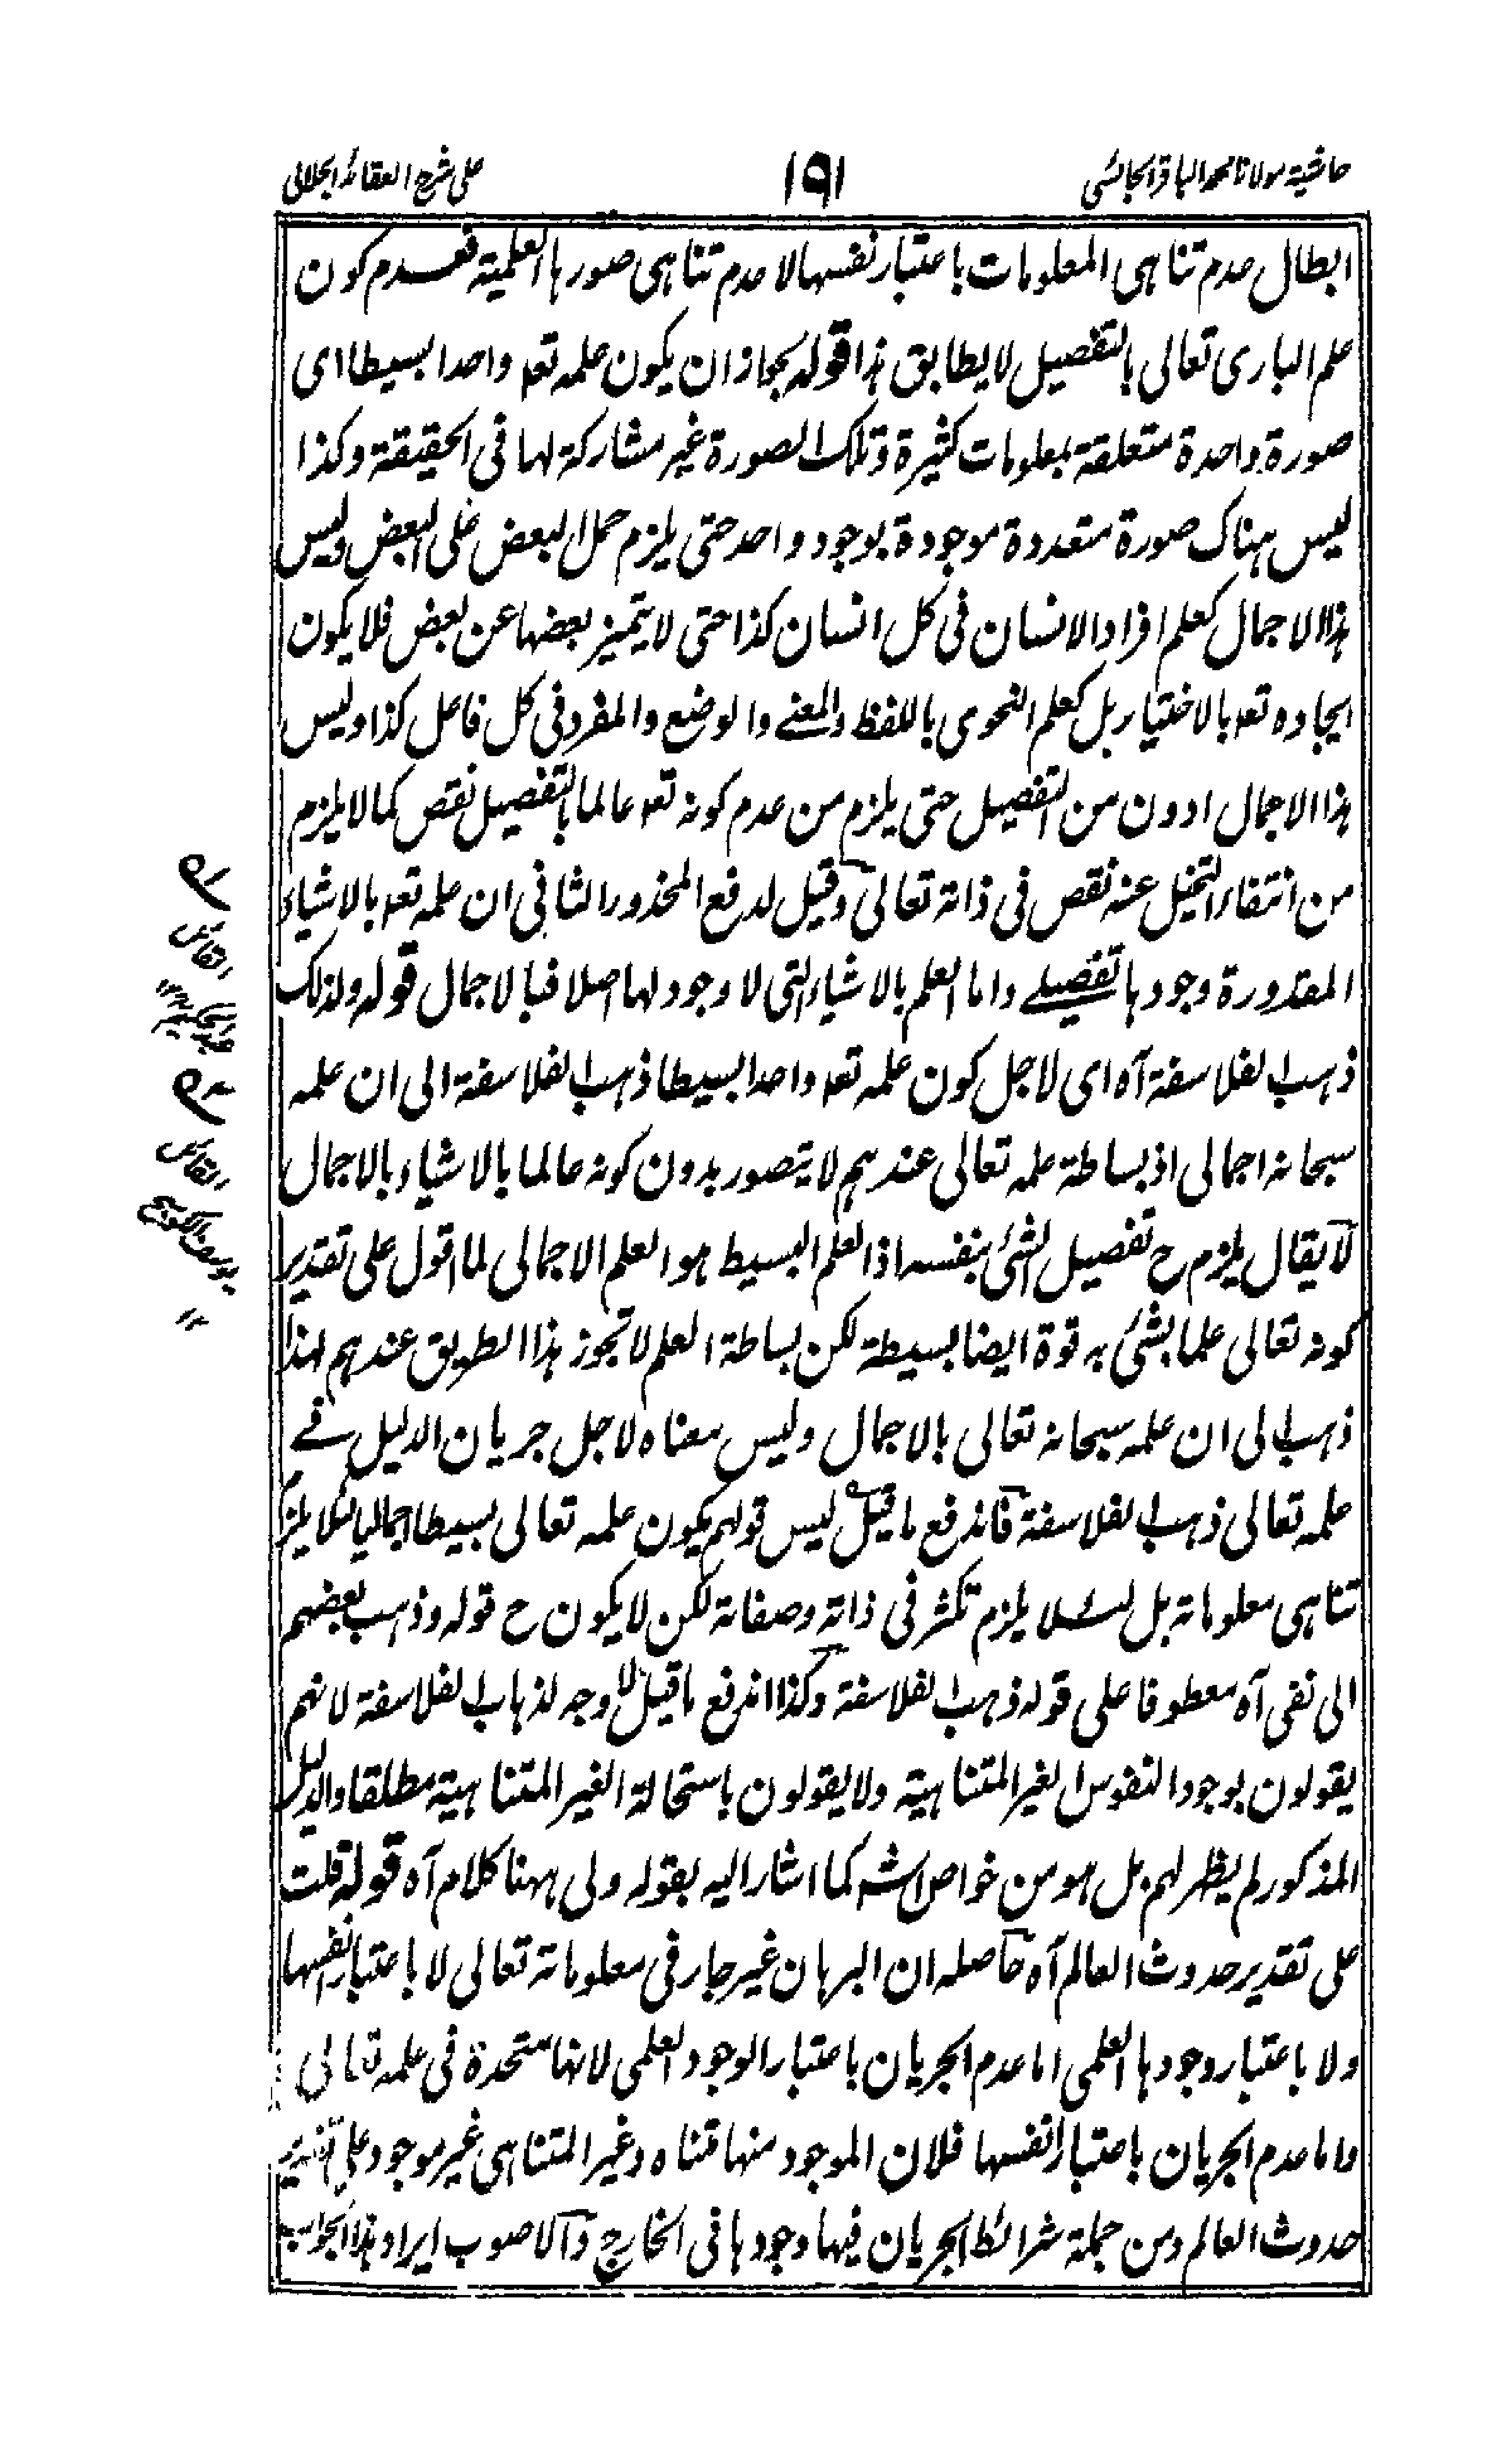 حاشية مولانا محمد الباقر الجائسي
١٩١
على شرح العقائد الجلالي
ابطال عدم تناهى المعلومات باعتبار نفسها لا عدم تناهى صورها العلمية فعدم كون
علم البارى تعالى بالتفصيل لا يطابق هذا قوله بجواز ان يكون علمه تعہ واحدا بسيطا اى
صورة واحدة متعلقة بمعلومات كثيرة وتلك الصورة غير مشاركة لها فى الحقيقة وكذا
ليس هناك صورة متعددة موجودة بوجود واحد حتى يلزم حمل البعض على البعض وليس
هذا الاجمال كعلم افراد الانسان فى كل انسان كذا حتى لا يتميز بعضها عن بعض فلا يكون
ايجاده تعہ بالاختيار بل كعلم النحوى باللفظ والمعنے والوضع والمفرد فى كل فاعل كذا وليس
هذا الاجمال ادون من التفصيل حتى يلزم من عدم كونه تعہ عالما بالتفصيل نقص كما لا يلزم
من انتفاء التخيل عنه نقص فى ذاته تعالى وقيل لدفع المحذور الثانى ان علمه تعہ بالاشياء
المقدورة وجودها تفصيلے واما العلم بالاشياء التى لا وجود لها اصلا فبالاجمال قوله ولذلك
ذهب الفلاسفة آه اى لاجل كون علمه تعہ واحدا بسيطا ذهب الفلاسفة الى ان علمه
سبحانه اجمالى اذ بساطة علمه تعالى عندهم لا يتصور بدون كونه عالما بالاشياء بالاجمال
لا يقال يلزم ح تفصيل الشئ بنفسه اذ العلم البسيط هو العلم الاجمالى لما اقول على تقدير
كونه تعالى علما بشئ به قوة ايضا بسيطة لكن بساطة العلم لا تجوز هذا الطريق عندهم لهذا
ذهب الى ان علمه سبحانه تعالى بالاجمال وليس معناه لاجل جريان الدليل فے
علمه تعالى ذهب الفلاسفة فاندفع ما قيل ليس قولهم بكون علمه تعالى بسيطا اجماليا لئلا يلزم
تناهى معلوماته بل لئلا يلزم تكثر فى ذاته وصفاته لكن لا يكون ح قوله وذهب بعضهم
الى نفى آه معطوفا على قوله ذهب الفلاسفة وكذا اندفع ما قيل لا وجه لذهاب الفلاسفة لانهم
يقولون بوجود النفوس الغير المتناهية ولا يقولون باستحالة الغير المتناهية مطلقا والدليل
المذكور لم يظهر لهم بل هو من خواص الشہ كما اشار اليه بقوله ولى ههنا كلام آه قوله قلت
على تقدير حدوث العالم آه حاصله ان البرهان غير جار فى معلوماته تعالى لا باعتبار انفسها
ولا باعتبار وجودها العلمى اما عدم الجريان باعتبار الوجود العلمى لانها متحدة فى علمه تعالى
واما عدم الجريان باعتبار انفسها فلان الموجود منها متناه وغير المتناهى غير موجود على تقدير
حدوث العالم ومن جملة شرائط الجريان فيها وجودها فى الخارج والاصوب ايراد هذا الجواب
القائل
القائل
يوسف الكوسج
١٢